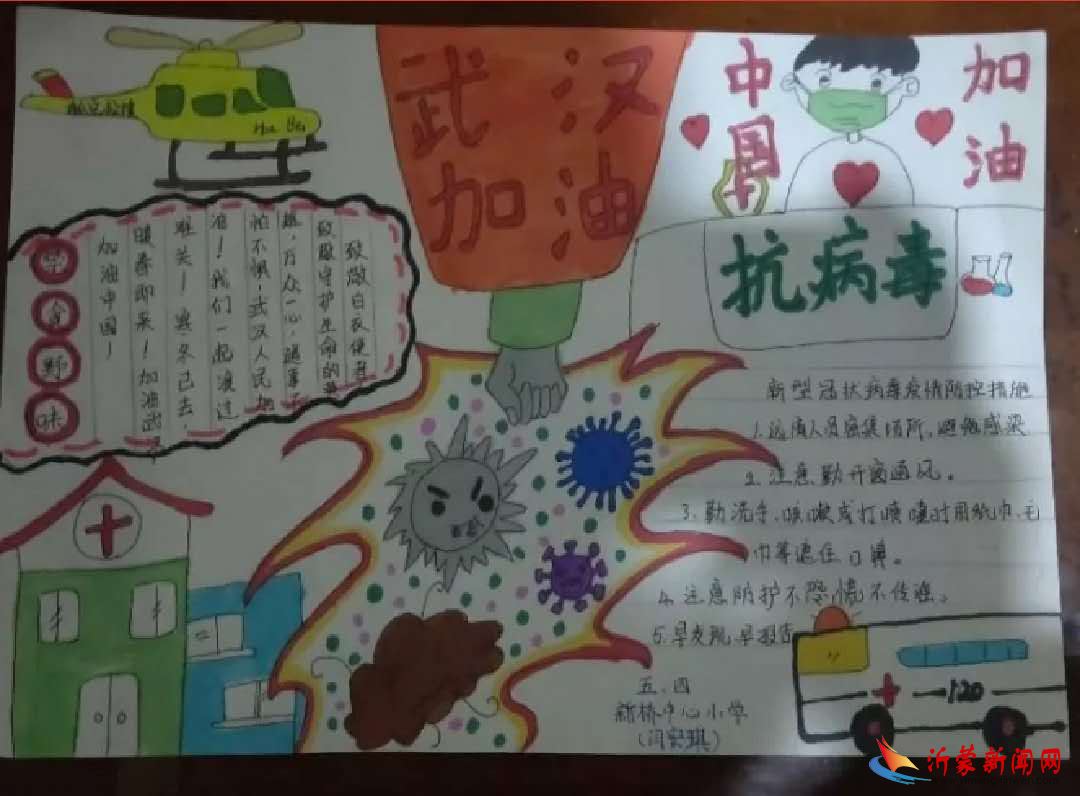 武汉
加油
中国
加油
抗病毒
Hu Bei
野
味
致敬白衣使者
致敬守护生命的
万众一心
怕不惧,武汉人民
油!我们一起渡过
难关!寒冬已去,
暖春即来!加油武
加油中国!
新型冠状病毒疫情防控措施
1.远离人员密集场所,避免感染
2.注意勤开窗通风。
3.勤洗手,咳嗽或打喷嚏时用纸巾、毛
巾等遮住口鼻。
4.注意防护不恐慌不传谣。
5.早发现,早报告
120
五、四
新桥中心小学
沂蒙新闻网